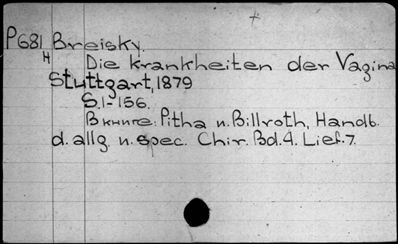 P681 Breisky.
H Die krankheiten der Vagina
Stuttgart, 1879
S.1-156.
В книге: Pitha u. Billroth, Handb.
d. allg. u. spec. Chir. Bd.4. Lief.7.